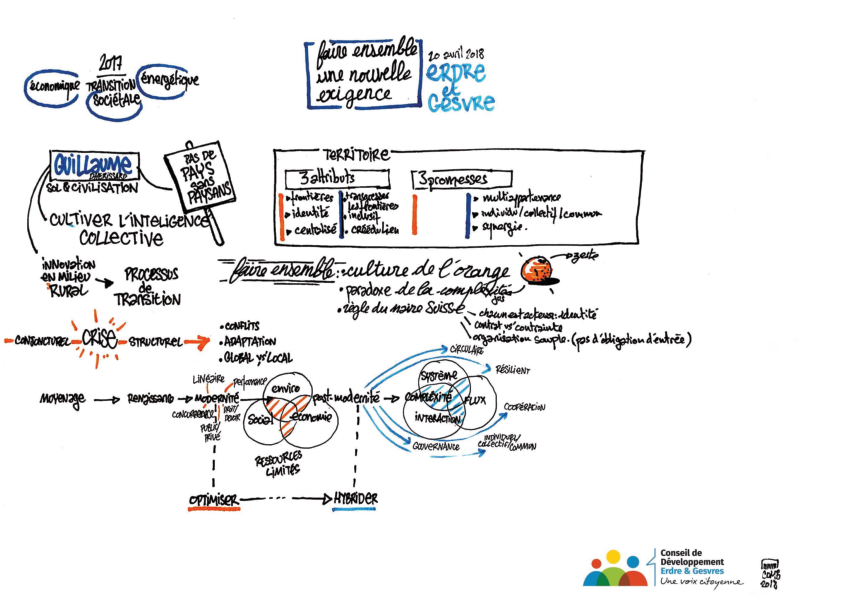 2017
économique TRANSITION énergétique
SOCIÉTALE
faire ensemble
une nouvelle
exigence
20 avril 2018
ERDRE
et
GESVRE
GUILLAUME
DHÉRISSARD
SOL & CIVILISATION
PAS DE
PAYS
sans
PAYSANS
CULTIVER L'INTELIGENCE
COLLECTIVE
TERRITOIRE
3 attributs
frontières
identité
centralisé
transgresser
les frontières
inclusif
créé du lien
3 promesses
multiappartenance
individu/collectif/commun
synergie.
INNOVATION
EN MILIEU
RURAL
PROCESSUS
de
TRANSITION
faire ensemble: culture de l'orange
zeste
paradoxe de la complexité
règle du maire Suisse
chacun est acteur: identité
contrat vs contrainte
organisation souple. (pas d'obligation d'entrée)
CONJONCTUREL CRISE STRUCTUREL
CONFLITS
ADAPTATION
GLOBAL vs LOCAL
MOYENAGE Renaissance MODERNITÉ post-modernité
LINÉAIRE
performance
CONCURRENCE
PUBLIC/
PRIVÉ
enviro
social
économie
RESSOURCES
LIMITÉS
SYSTÈME
COMPLEXITÉ
FLUX
INTERACTION
CIRCULAIRE
RÉSILIENT
COOPÉRATION
INDIVIDUEL/
COLLECTIF/COMMUN
GOUVERNANCE
OPTIMISER
HYBRIDER
Conseil de
Développement
Erdre & Gesvres
Une voix citoyenne
2018